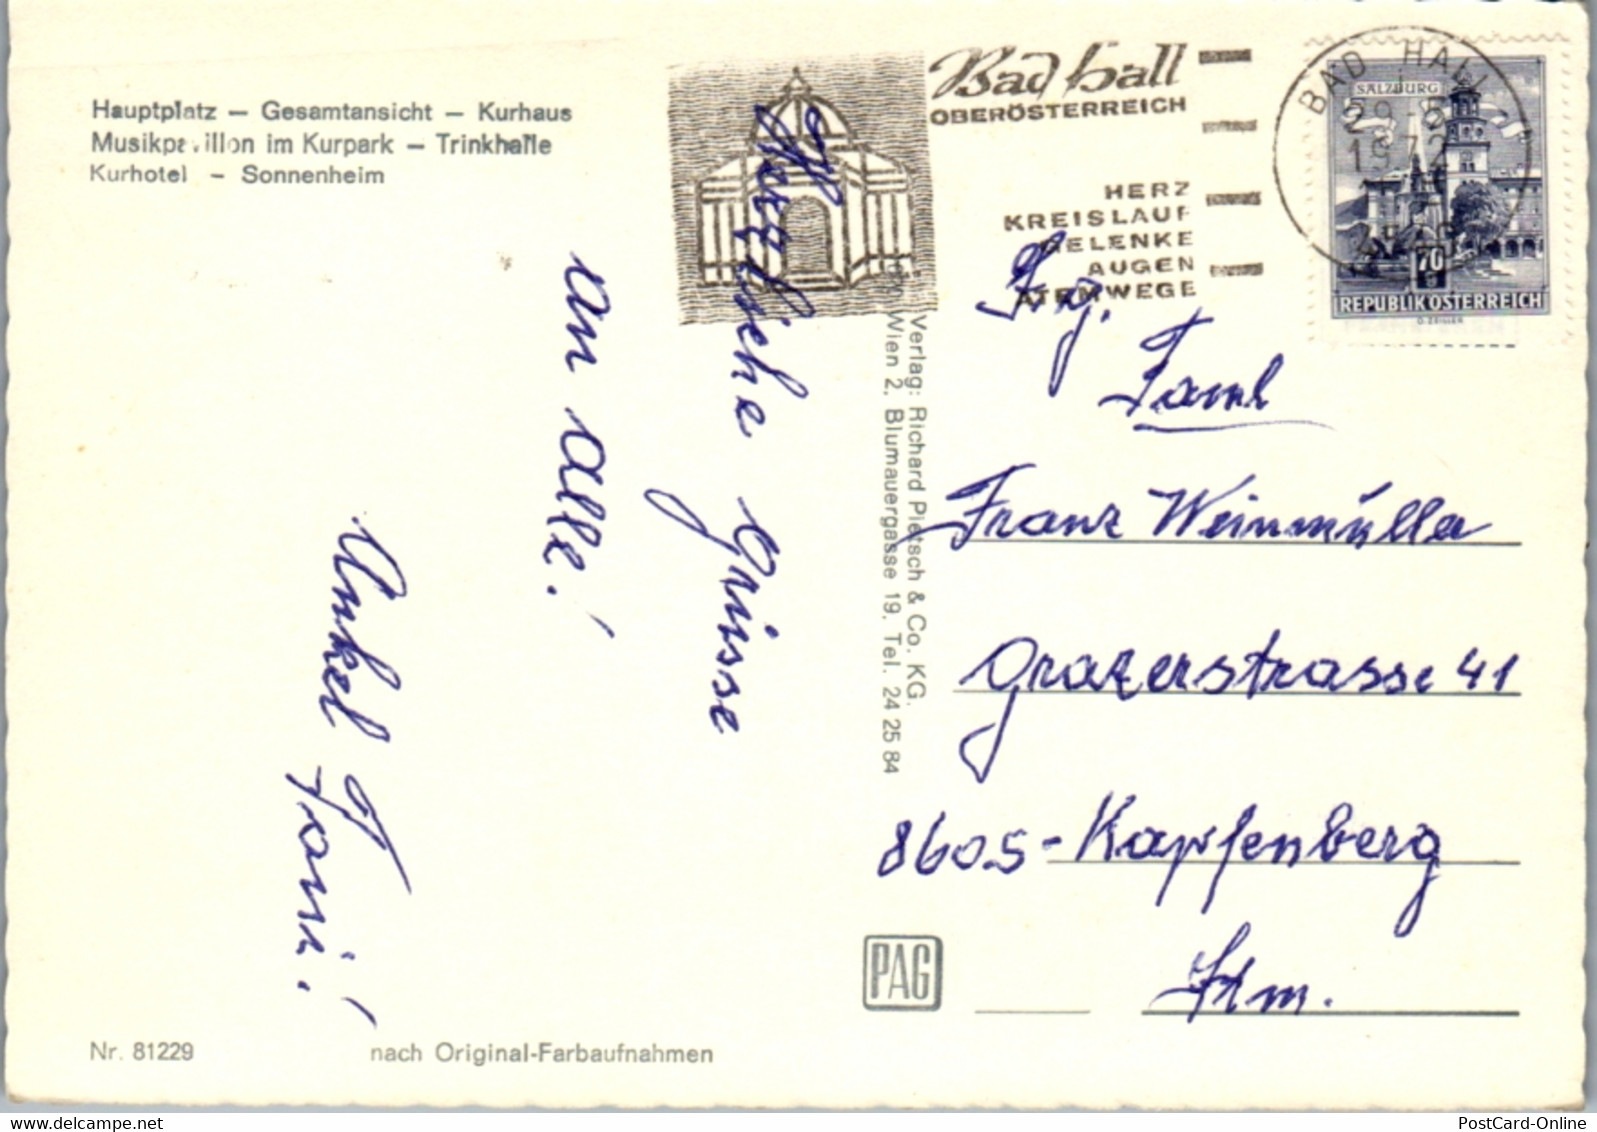 Hauptplatz – Gesamtansicht – Kurhaus
Musikpavillon im Kurpark – Trinkhalle
Kurhotel – Sonnenheim
Bad Hall
OBERÖSTERREICH
HERZ
KREISLAUF
GELENKE
AUGEN
ATEMWEGE
BAD HALL
29.-5.
1972
SALZBURG
70
REPUBLIK ÖSTERREICH
Herzliche Grüsse
an alle!
Onkel Toni!
Verlag: Richard Pietsch & Co. KG.
Wien 2, Blumauergasse 19, Tel. 24 25 84
Fg.
Faml
Franz Weinmüller
Grazerstrasse 41
8605-Kapfenberg
Stm.
PAG
Nr. 81229
nach Original-Farbaufnahmen
PostCard-Online